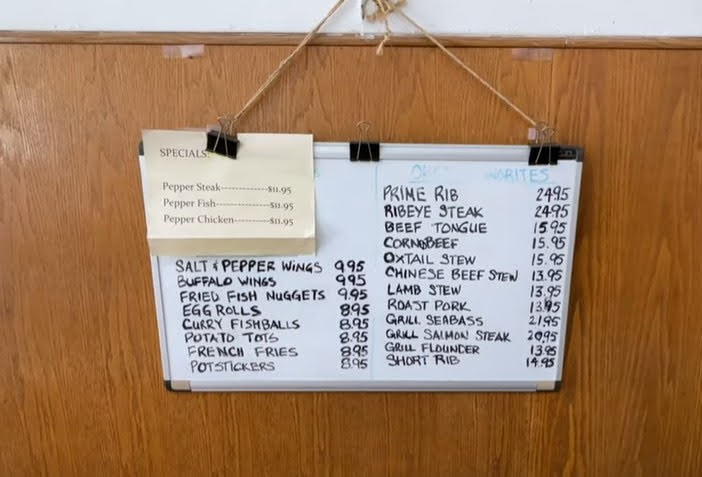 SPECIALS:
Pepper Steak-------------$11.95
Pepper Fish---------------$11.95
Pepper Chicken----------$11.95
SALT & PEPPER WINGS 9.95
BUFFALO WINGS 9.95
FRIED FISH NUGGETS 9.95
EGG ROLLS 8.95
CURRY FISHBALLS 8.95
POTATO TOTS 8.95
FRENCH FRIES 8.95
POTSTICKERS 8.95
PRIME RIB 24.95
RIBEYE STEAK 24.95
BEEF TONGUE 15.95
CORNDBEEF 15.95
OXTAIL STEW 15.95
CHINESE BEEF STEW 13.95
LAMB STEW 13.95
ROAST PORK 13.95
GRILL SEABASS 21.95
GRILL SALMON STEAK 20.95
GRILL FLOUNDER 13.95
SHORT RIB 14.95